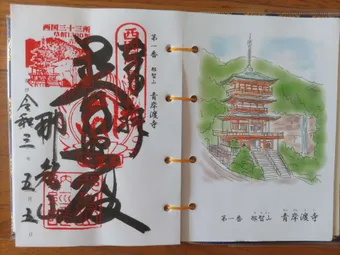 第一番 那智山 青岸渡寺
奉拝
普照殿
那智山
西国三十三所
令和三年五月五日
第一番 那智山 青岸渡寺